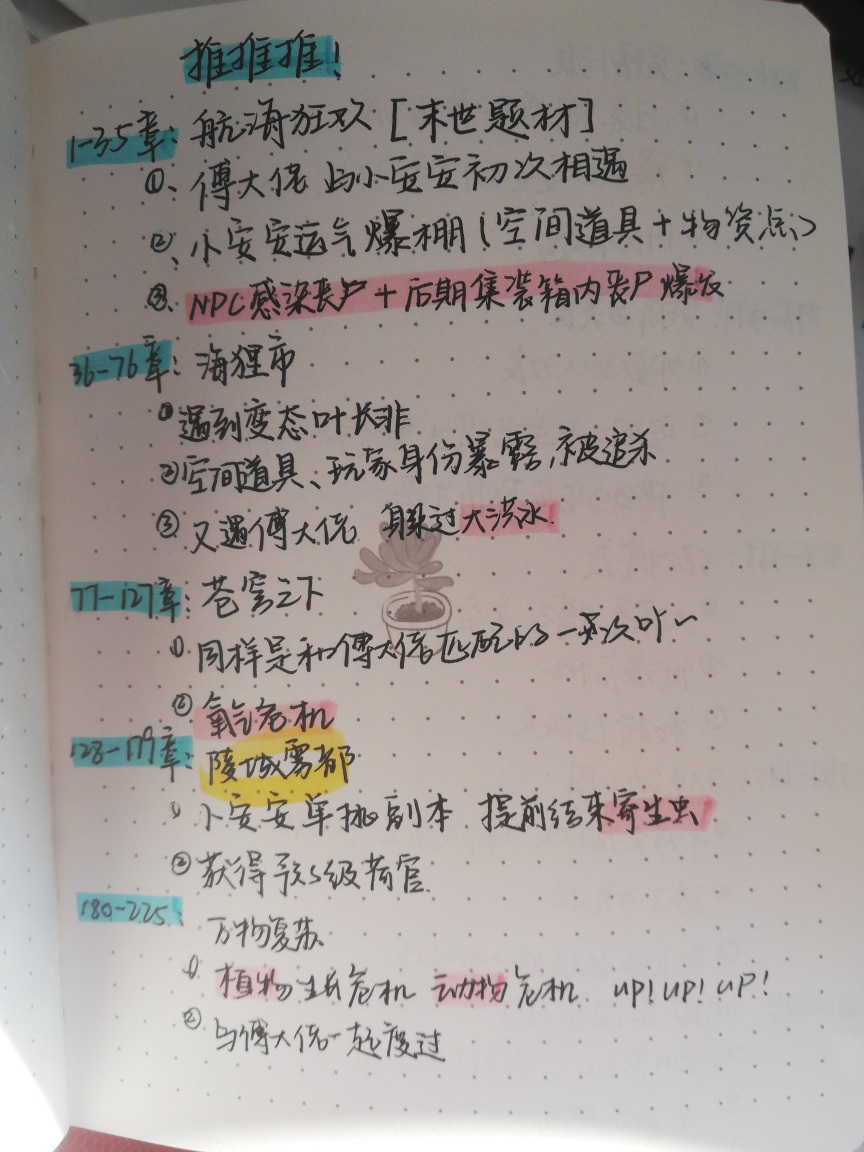 推推推!
1-35章: 航海狂欢 [末世题材]
①、傅大佬 与小安安初次相遇
②、小安安运气爆棚(空间道具+物资点)
③、NPC感染丧尸+后期集装箱内丧尸爆发
36-76章: 海猩市
①遇到变态叶长非
②空间道具、玩家身份暴露,被追杀
③又遇傅大佬 躲过大洪水
77-127章: 苍穹之下
①同样是和傅大佬匹配的一次吖~
②氧气危机
128-179章: 陵城雾都
①小安安单挑副本 提前结束寄生虫
②获得 S级荷官
180-225: 万物复苏
①植物生长危机 动物危机 up! up! up!
②与傅大佬一起度过